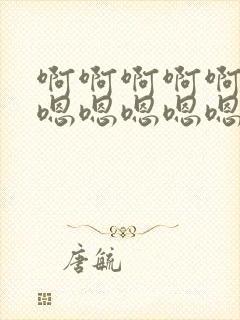 啊啊啊啊啊
嗯嗯嗯嗯嗯
唐毓